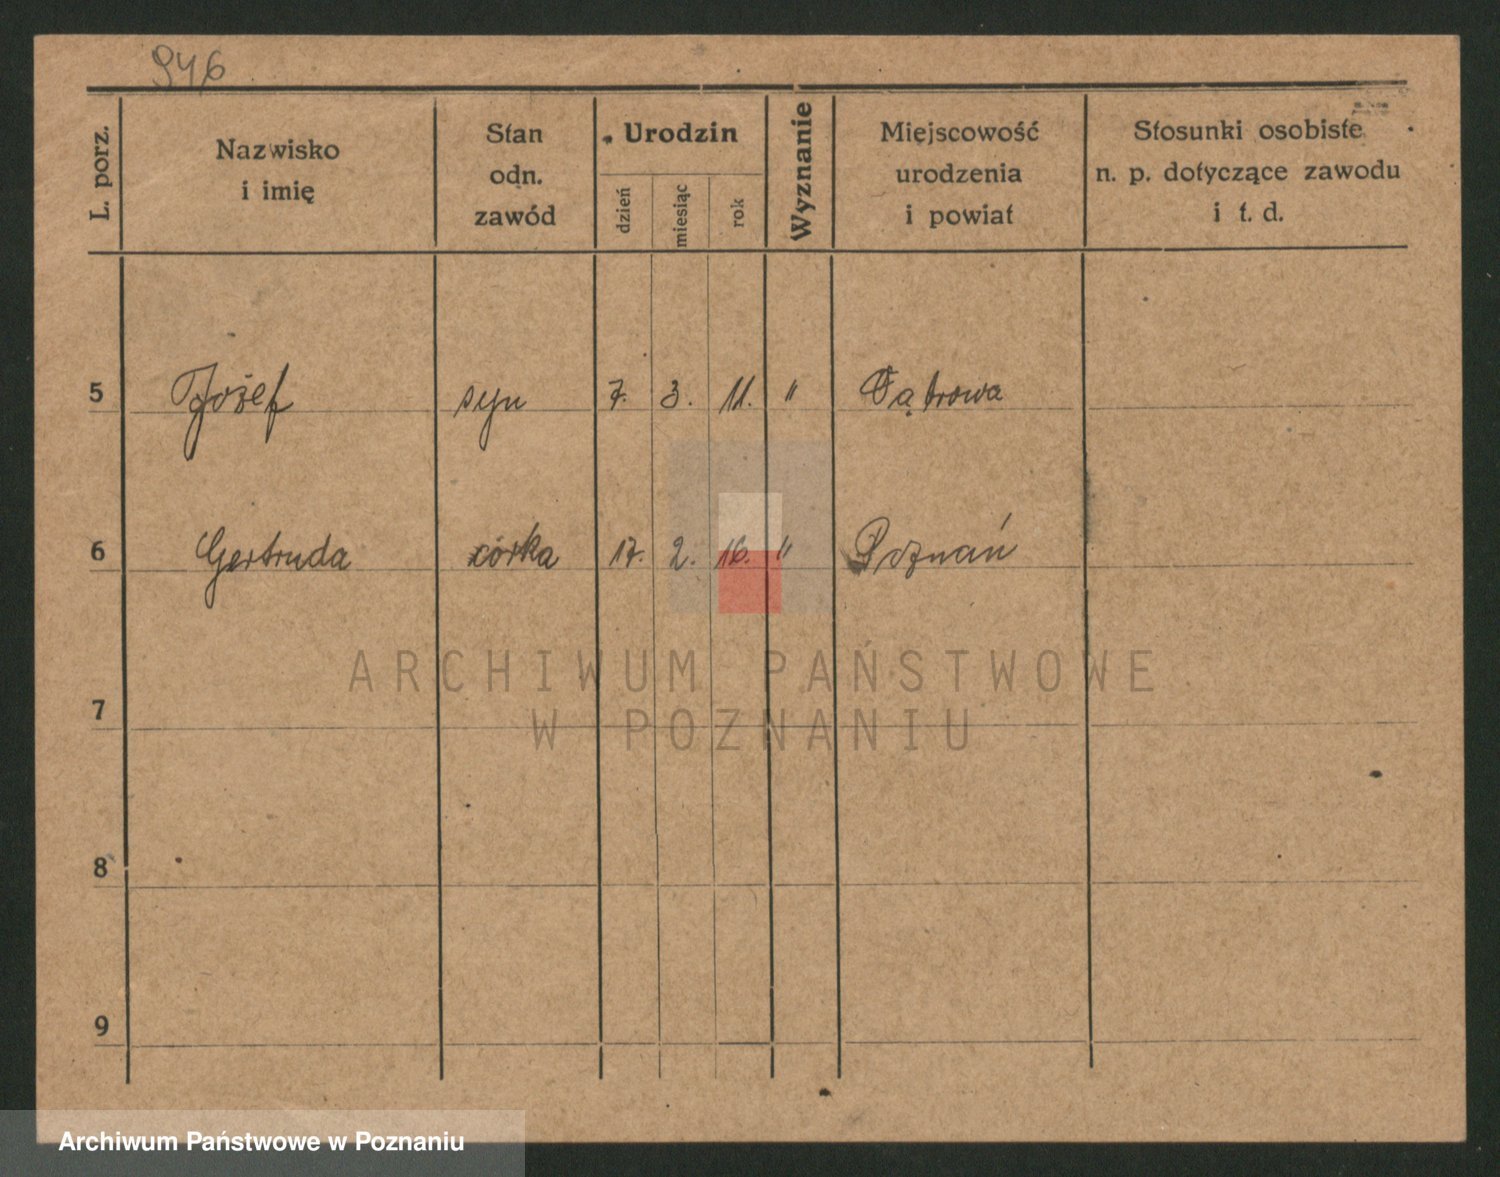 946
L. porz.
Nazwisko
i imię
Stan
odn.
zawód
Urodzin
dzień
miesiąc
rok
Wyznanie
Miejscowość
urodzenia
i powiat
Stosunki osobiste
n. p. dotyczące zawodu
i t. d.
5 Józef syn 7. 3. 11. "
6 Gertruda córka 17. 2. 16. " Poznań
7
8
9
ARCHIWUM PAŃSTWOWE
W POZNANIU
Archiwum Państwowe w Poznaniu